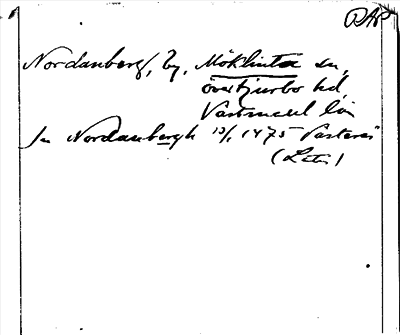 RAP
Nordanberg, by, Möklinta sn,
övertjurbo hd,
Västmanl län
In Nordanbergh 13/1 1475 Västerås
(Lat.)